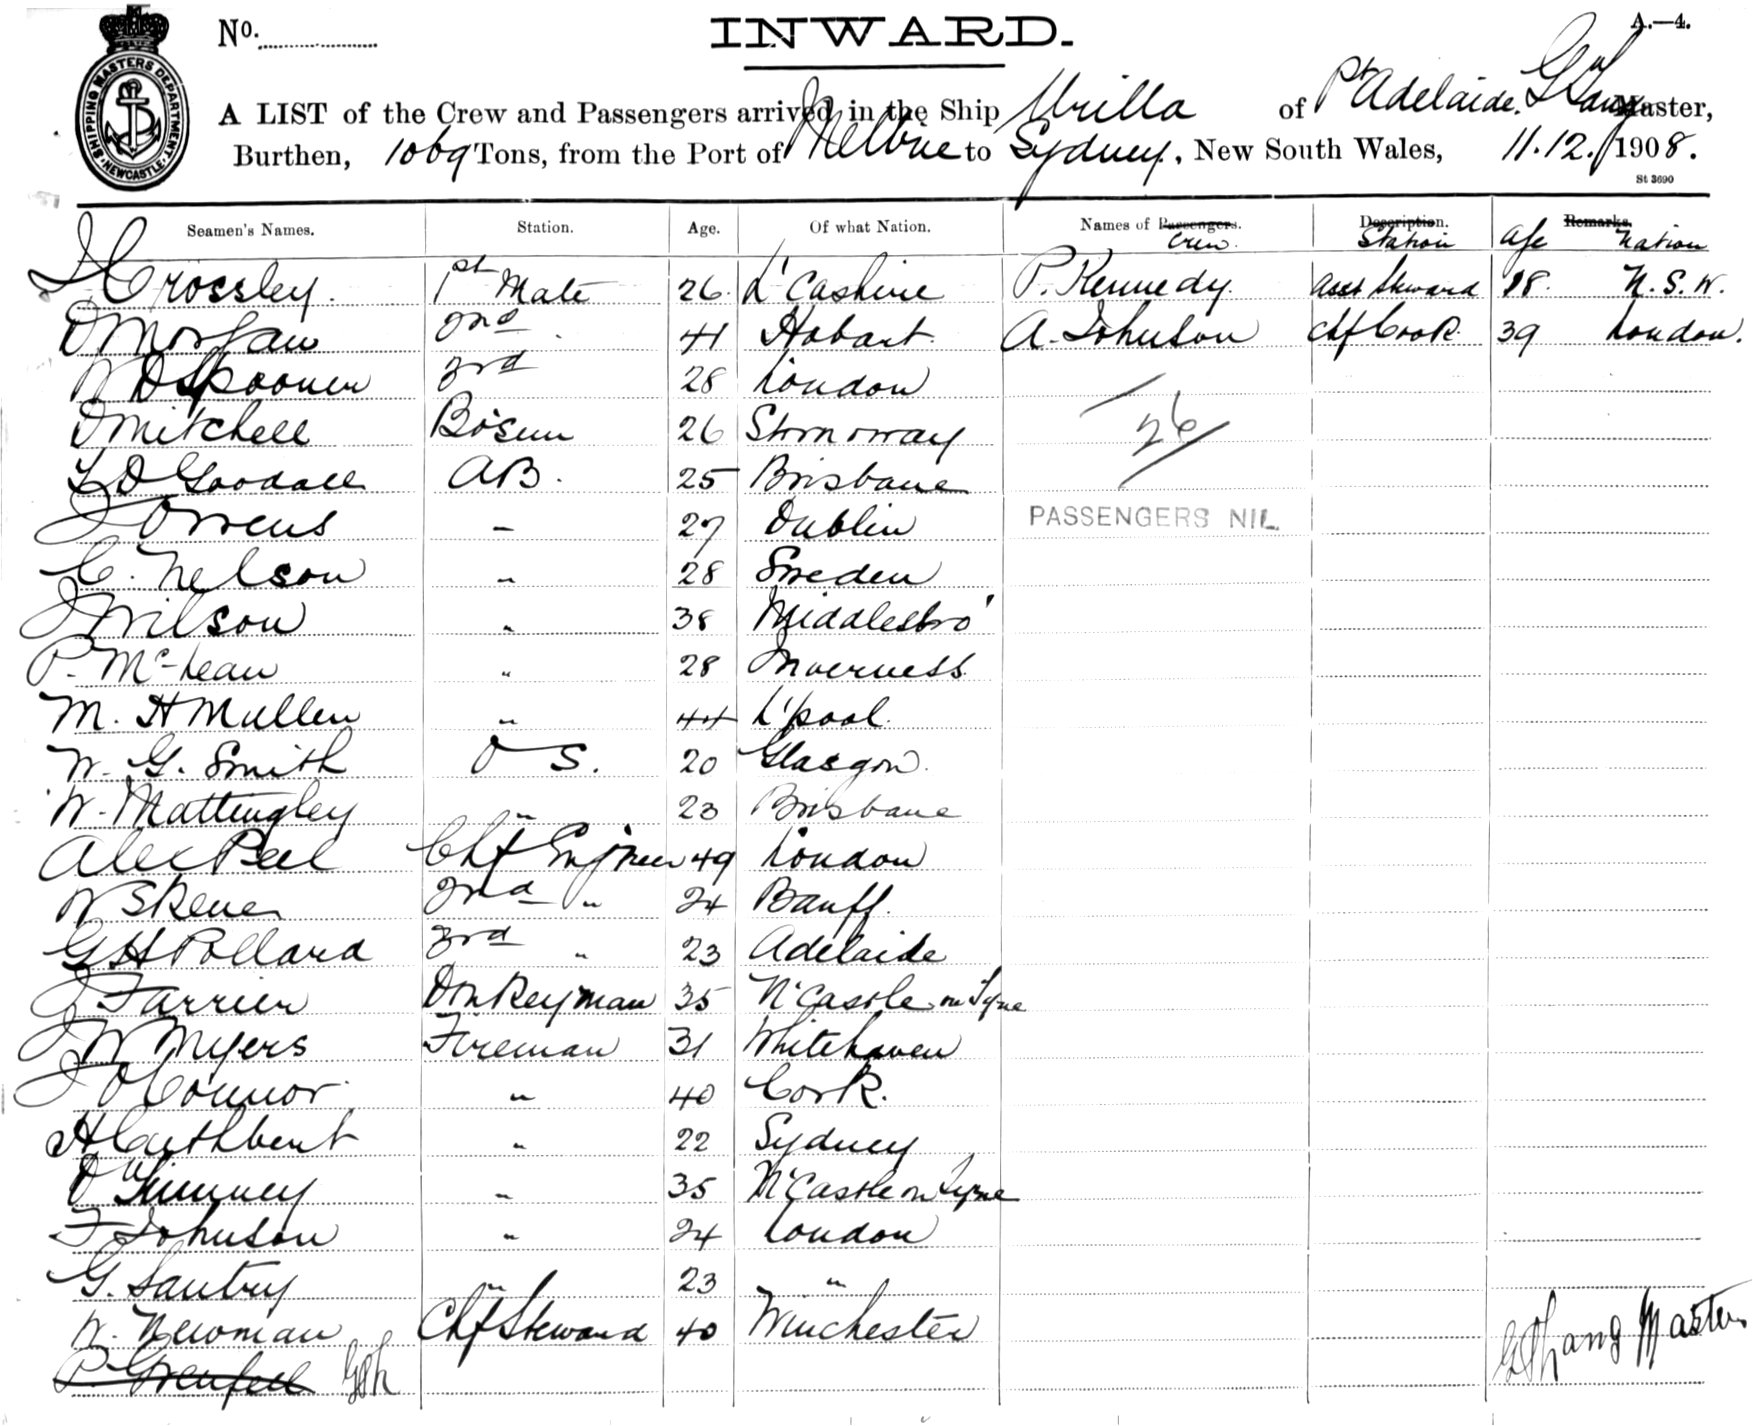 SHIPPING MASTERS DEPARTMENT. NEWCASTLE
No.
INWARD.
A.—4.
A LIST of the Crew and Passengers arrived in the Ship Urilla of Pt Adelaide. Master,
Burthen, 1069 Tons, from the Port of Melbne to Sydney, New South Wales, 11.12./1908.
St 3690
Seamen's Names. Station. Age. Of what Nation. Names of Passengers. Crew. Description. Station Age Remarks. Nation
J Crossley. 1st Mate 26 L'Cashire P. Kennedy. Asst Steward 18. N.S.W.
D Morgan 2nd 41 Hobart. A. Johnson Chf Cook 39 London.
W D Spooner 3rd 28 London
D Mitchell Bosun 26 Stornoway 26
D Goodall AB. 25 Brisbane
J Orrens – 27 Dublin PASSENGERS NIL
C. Nelson " 28 Sweden
J Wilson " 38 Middlesbro'
P. McLean " 28 Inverness
M. H Mullen " 44 L'pool.
W. G. Smith O S. 20 Glasgow.
W. Mattingley " 23 Brisbane
Alec Peel Chf Engineer 49 London
W Skene 2nd " 24 Banff.
G H Pollard 3rd " 23 Adelaide
J Farrier Donkeyman 35 N'Castle on Tyne
J W Myers Fireman 31 Whitehaven
J O'Connor. " 40 Cork.
H Cuthbert " 22 Sydney
D " 35 N'Castle on Tyne
F Johnson " 24 London
G. Santry " 23 "
W. Newman Chf Steward 40 Winchester
P. Grenfell
G H Lang Master